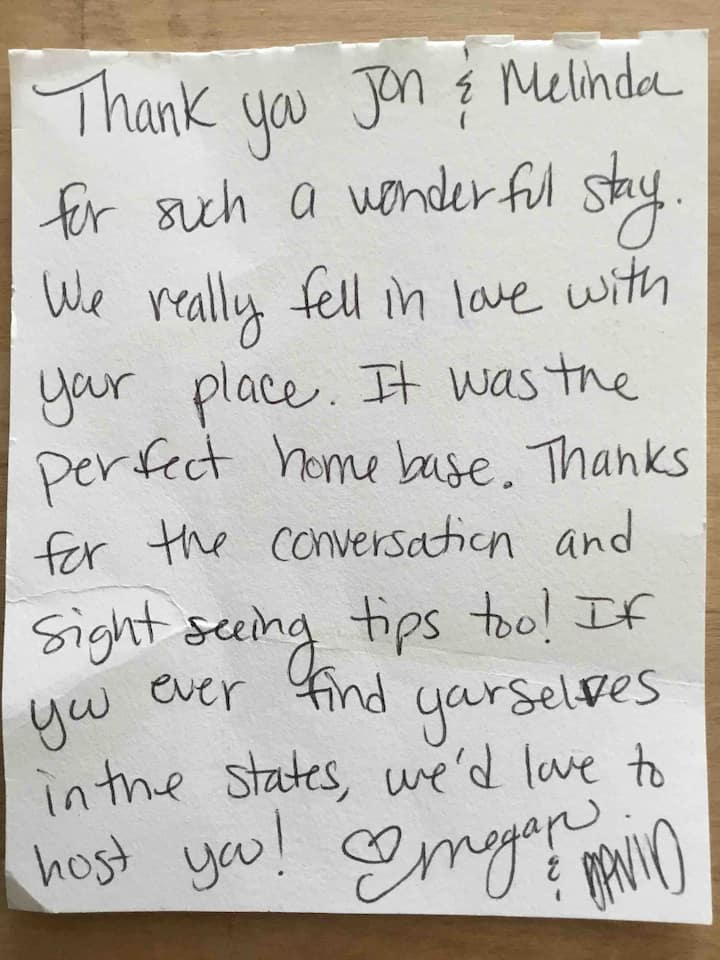 Thank you Jon & Melinda
for such a wonderful stay.
We really fell in love with
your place. It was the
perfect home base. Thanks
for the conversation and
sight seeing tips too! If
you ever find yourselves
in the states, we'd love to
host you! ♡ megan
& DAVID